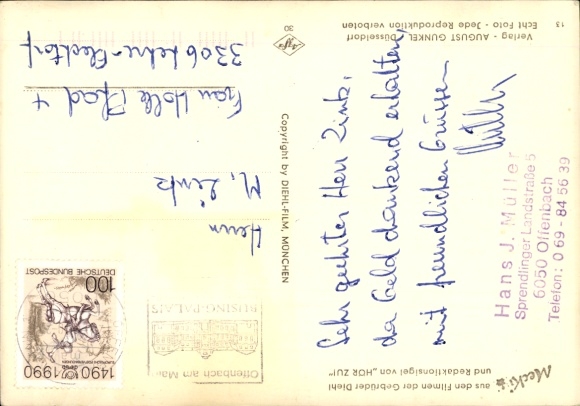 Mecki
aus den Filmen der Gebrüder Diehl
und Redaktionsigel von „HÖR ZU!"
Sehr geehrter Herr Zink,
das Geld dankend erhalten,
mit freundlichen Grüssen
Müller
Hans J. Müller
Sprendlinger Landstraße 5
6050 Offenbach
Telefon: 0 69 - 84 56 39
Copyright by DIEHL-FILM, MÜNCHEN
1490 1990
100
DEUTSCHE BUNDESPOST
Offenbach am Main
BÜSING-PALAIS
Herrn
M. Zink
Frau Holle Pfad 4
3306 Lehre-Flechtorf
Agfa
30
Verlag - AUGUST GUNKEL, Düsseldorf
Echt Foto - Jede Reproduktion verboten
13